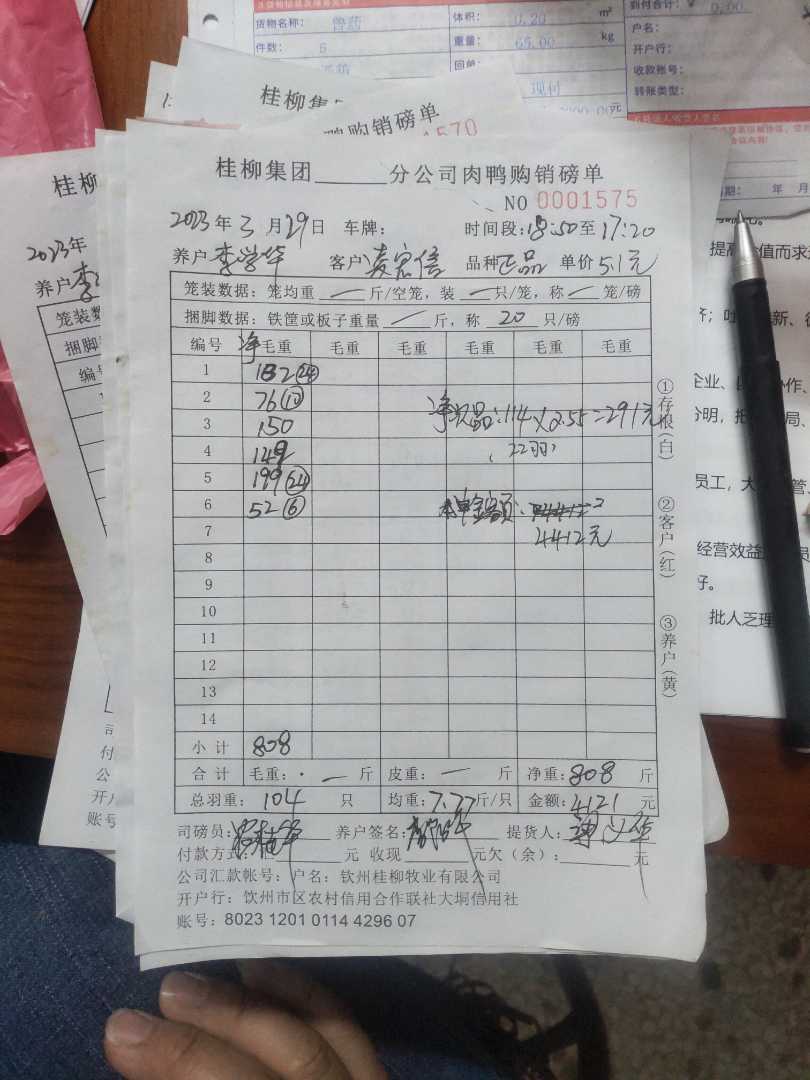 货物名称： 兽药 体积： 0.20 m³ 到付合计：¥ 0.00
件数： 5 重量： 65.00 kg 户名：
回单 开户行：
现付 收款账号：
转账类型：
桂柳集团
鸭购销磅单
1570
桂柳
2023年
养户
笼装数
捆脚数
编号
桂柳集团______分公司肉鸭购销磅单
NO 0001575
2023年3月29日 车牌： 时间段：18:50至17:20
养户 李学华 客户 凌宏信 品种 正品 单价 5.1元
笼装数据：笼均重 — 斤/空笼，装 — 只/笼，称 — 笼/磅
捆脚数据：铁筐或板子重量 — 斤，称 20 只/磅
编号 净毛重 毛重 毛重 毛重 毛重 毛重
1 182 24
2 76 10
净次品：114×2.55=291元
3 150
4 149
（22羽）
5 199 24
6 52 6
本单金额：
7
4412元
8
9
10
11
12
13
14
小计 808
合计 毛重： — 斤 皮重： — 斤 净重：808 斤
总羽重： 104 只 均重：7.77斤/只 金额：4121 元
司磅员： 养户签名： 提货人：
付款方式：汇______元 收现______元欠（余）：______元
公司汇款帐号：户名：钦州桂柳牧业有限公司
开户行：钦州市区农村信用合作联社大垌信用社
账号：8023 1201 0114 4296 07
①存根（白）
②客户（红）
③养户（黄）
期： 年 月
提高
值而求
企业、
作、
分明，
员工，大
管、
经营效益
员
好。
批人